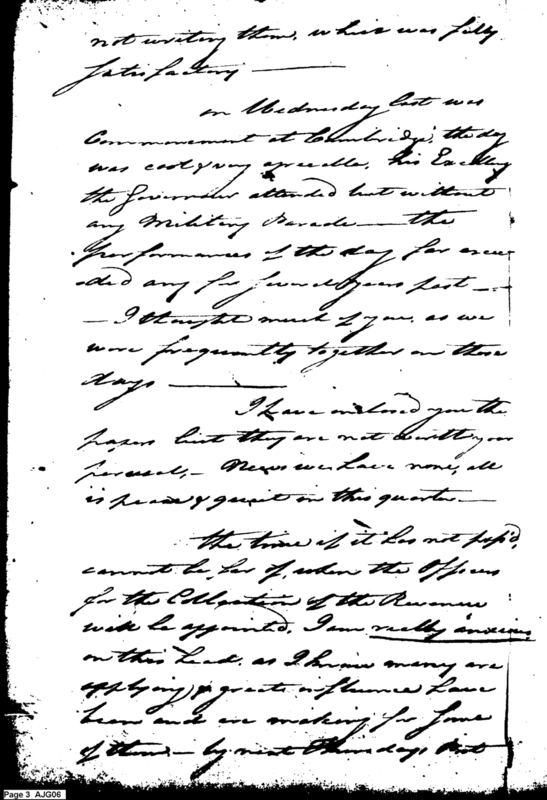 not writing them, which was fully
satisfactory —
on Wednesday last was
Commencement at Cambridge, the day
was cool & very agreeable, his Excellency
the Governour attended but without
any Military Parade — the
performances of the day far excee-
-ded any for several years past —
— I thought much of you, as we
were frequently together on those
days —
I have enclosed you the
papers but they are not worth your
perusal, — News we have none, all
is peace & quiet in this quarter —
the time if it has not pass'd,
cannot be far off, when the Officers
for the Collection of the Revenue
will be appointed, I am really anxious
on this head, as I know many are
applying & great influence have
been and are making for some
of them — by next Thursdays Post
Page 3 AJG06